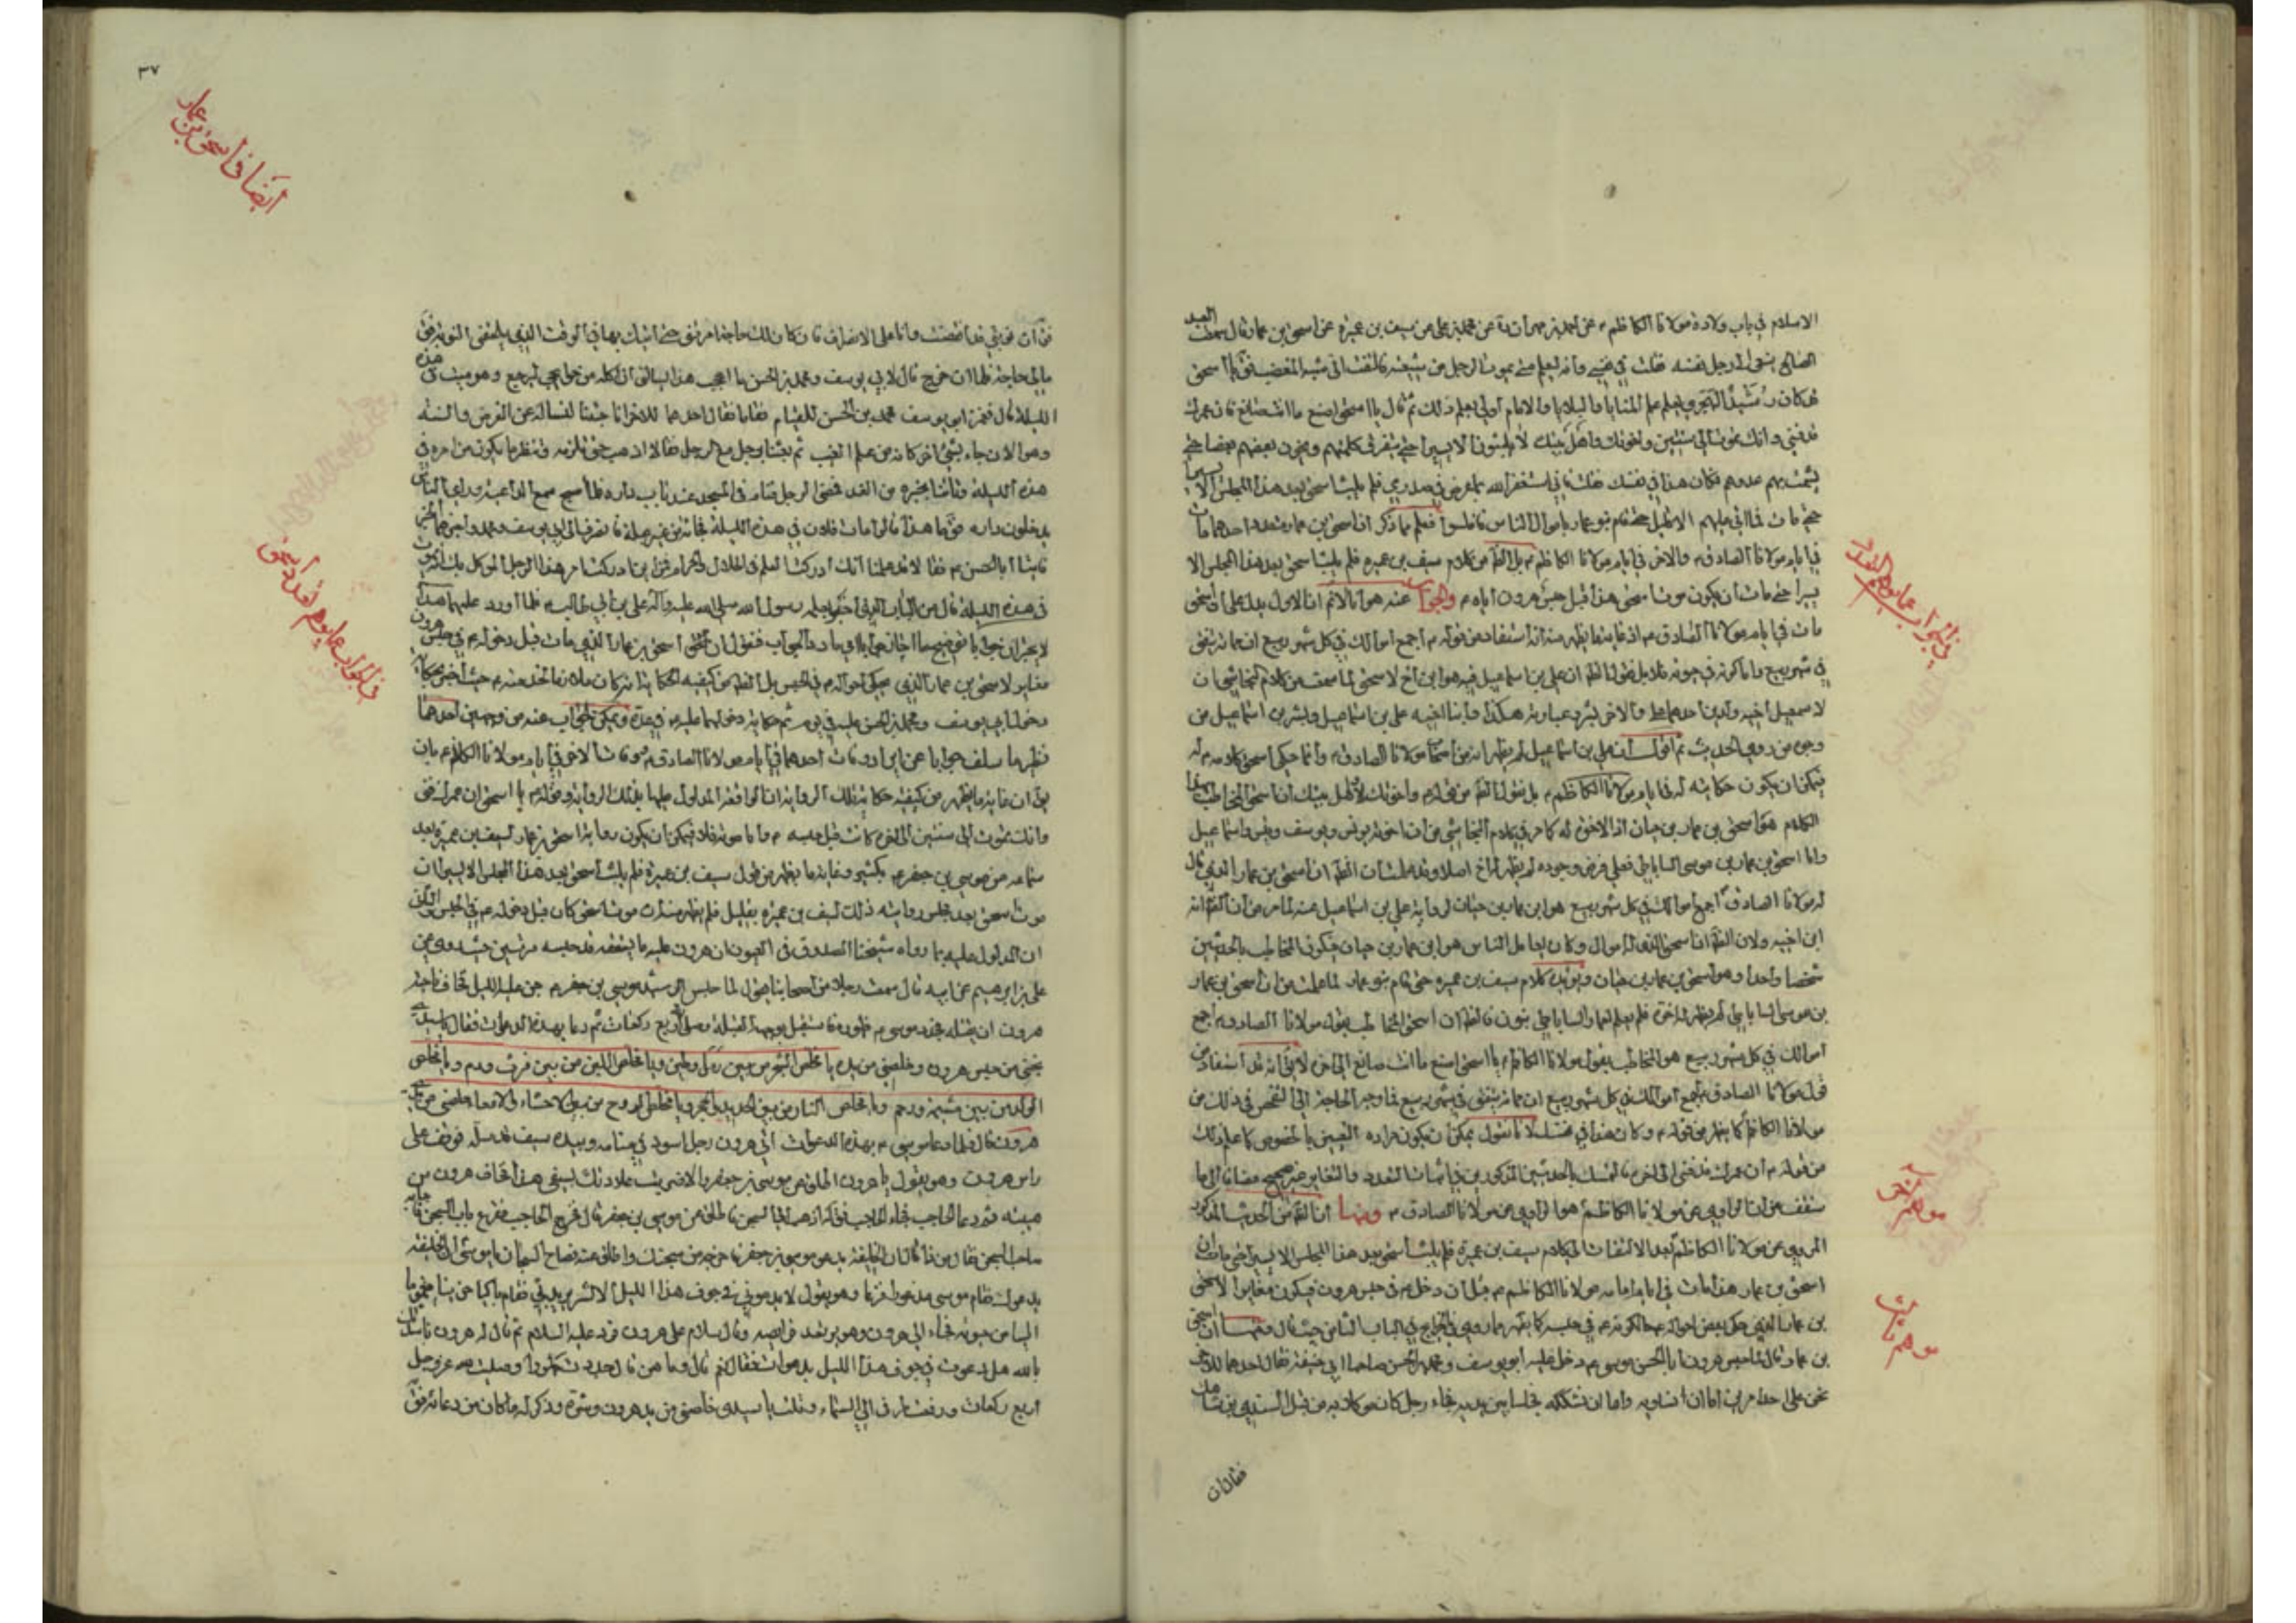 الاسلام في باب ولادة مولانا الكاظم ع عن احمد بن مهران ره عن محمد بن علي عن سيف بن عميرة عن اسحق بن عمار قال سمعت العبد
الصالح ينعى الى رجل نفسه فقلت في نفسي وانه ليعلم متى يموت الرجل من شيعته فالتفت الى شبه المغضب فق يا اسحق
قد كان رشيد الهجري يعلم علم المنايا والبلايا والامام اولى بعلم ذلك ثم قال يا اسحق اصنع ما انت صانع فان عمرك
قد فنى وانك تموت الى سنتين واخوتك واهل بيتك لا يلبثون الا يسيرا حتى يتفرق كلمتهم ويخون بعضهم بعضا حتى
يشمت بهم عدوهم فكان هذا في نفسك فقلت فاني استغفر الله بما عرض في صدري فلم يلبث اسحق بعد هذا المجلس الا يسيرا
حتى مات فما اتى عليهم الا قليل حتى قام بنو عمار باموال الناس فافلسوا فعلم مما ذكر ان اسحق بن عمار متعدد احدهما مات
في ايام مولانا الصادق ع والاخر في ايام مولانا الكاظم ع بل الظ من كلام سيف بن عميرة فلم يلبث اسحق بعد هذا المجلس الا
يسيرا حتى مات ان يكون موت اسحق هذا قبل حبس هرون اياه ع والجواب عنه هو انا لانم ان الاول يدل على ان اسحق
مات في ايام مولانا الصادق ع اذ غاية ما يظهر منه انه استفاد من قوله ع اجمع اموالك في كل شهر ربيع ان مماته يتفق
في شهر ربيع واما كونه في حيوته فلا بل نقول الظ ان علي بن اسماعيل فيه هو ابن اخ لاسحق لما سمعت من كلام النجاشي ان
لاسمعيل اخيه ولدين احدهما علي والاخر بشر وعبارته هكذا وابنا اخيه علي بن اسماعيل وبشر بن اسماعيل من
وجوه من روى الحديث ثم اقول ان علي بن اسماعيل لم يظهر انه من اصحاب مولانا الصادق ع وانما حكى اسحق كلامه ع له
فيمكن ان يكون حكايته له في ايام مولانا الكاظم ع بل نقول الظ من قوله ع واخوتك واهل بيتك ان اسحق المخاطب بهذا
الكلام هو اسحق بن عمار بن حيان اذ الاخوة له كما مر في كلام النجاشي من ان اخوته يونس ويوسف وقيس واسماعيل
واما اسحق بن عمار بن موسى الساباطي فعلى فرض وجوده لم يظهر له اخ اصلا وقد علمت ان الظ ان اسحق بن عمار الذي قال
له مولانا الصادق ع اجمع اموالك في كل شهر ربيع هو ابن عمار بن حيان لرواية علي بن اسماعيل عنه لما مر من ان الظ انه
ابن اخيه ولان الظ ان اسحق الذي له اموال وكان يعامل الناس هو ابن عمار بن حيان فيكون المخاطب بالحديثين
شخصا واحدا وهو اسحق بن عمار بن حيان ويؤيده كلام سيف بن عميرة حتى قام بنو عمار لما علمت من ان اسحق بن عمار
بن موسى الساباطي لم يظهر له اخوة فلم يعلم لعمار الساباطي بنون فالظ ان اسحق المخاطب بقول مولانا الصادق ع اجمع
اموالك في كل شهر ربيع هو المخاطب بقول مولانا الكاظم ع يا اسحق اصنع ما انت صانع الى اخره لا يق انه قد استفاد من
قول مولانا الصادق ع اجمع اموالك في كل شهر ربيع ان مماته يتفق في شهر ربيع فما وجه الحاجة الى الفحص في ذلك من
مولانا الكاظم ع كما يظهر من قوله ع وكان هذا في نفسك لانا نقول يمكن ان يكون مراده التعيين بالخصوص كما علم ذلك
من قوله ع ان عمرك قد فنى الى اخره فالتمسك بالحديثين المذكورين في اثبات التعدد والتغاير غير صحيح مضافا الى ما
ستقف من ان الراوي عن مولانا الكاظم ع هو الراوي عن مولانا الصادق ع ومنها ان الظ من الحديث المذكور
المروي عن مولانا الكاظم ع بعد الالتفات الى كلام سيف بن عميرة فلم يلبث اسحق بعد هذا المجلس الا يسيرا حتى مات ان
اسحق بن عمار هذا مات في ايام امامة مولانا الكاظم ع قبل ان دخل ع في حبس هرون فيكون مغايرا لاسحق
بن عمار الذي حكى بعض احواله ع الكريمة في حبسه كما يظهر مما روى في الخرايج في الباب الثامن حيث قال ومنها ان اسحق
بن عمار قال لما حبس هرون ابا الحسن موسى ع دخل عليه ابو يوسف ومحمد بن الحسن صاحبا ابي حنيفة فقال احدهما للاخر
نحن على احد امرين اما ان نساويه واما ان نشككه فجلسا بين يديه فجاء رجل كان موكلا به من قبل السندي بن شاهك
فقال ان
في الجواب عما يوهم التعدد
موهم آخر
موهم ثالث
٣٧
ايضا في اسحق بن عمار
في الجواب عما يوهم تعدد اسحق
فق ان نوبتي قد انقضت وانا على الانصراف فان كان لك حاجة امرتني حتى اتيك بها في الوقت الذي يلحقني النوبة فق
ما لي حاجة فلما ان خرج قال لابي يوسف ومحمد بن الحسن ما اعجب هذا يسالني ان اكلفه من حوائجي ليرجع وهو ميت في هذه
الليلة قال فغمز ابو يوسف محمد بن الحسن للقيام فقاما فقال احدهما للاخر انا جئنا لنساله عن الفرض والسنة
وهو الان جاء بشئ اخر كانه من علم الغيب ثم بعثا برجل مع الرجل فقالا اذهب حتى تلزمه وتنظر ما يكون من امره في
هذه الليلة وتاتينا بخبره من الغد فمضى الرجل فنام في المسجد عند باب داره فلما اصبح سمع الواعية وراى الناس
يدخلون داره فق ما هذا قالوا مات فلان في هذه الليلة فجاة من غير علة فانصرف الى ابي يوسف ومحمد واخبرهما الخبر
فاتيا ابا الحسن ع فقالا قد علمنا انك ادركت العلم في الحلال والحرام فمن اين ادركت امر هذا الرجل الموكل بك انه يموت
في هذه الليلة قال من الباب الذي اخبر بعلمه رسول الله صلى الله عليه وآله علي بن ابي طالب ع فلما اورد عليهما هذا
لا يحيران جوابا
مغاير لاسحق بن عمار الذي يحكي احواله ع في الحبس بل الظ من كيفية الحكاية انه كان ملازما لخدمته ع حيث اخبر بحكاية
دخول ابي يوسف ومحمد بن الحسن عليه في يوم ثم حكاية دخولهما عليه ع في غده ويمكن الجواب عنه من وجهين احدهما
نظير ما سلف جوابا عن ايراد وفات احدهما في ايام مولانا الصادق ع وفات الاخر في ايام مولانا الكاظم ع بان
يق ان غاية ما يظهر من كيفية حكاية تلك الرواية ان الواقعة المدلول عليها بتلك الرواية وقوله ع يا اسحق ان عمرك فنى
وانك تموت الى سنتين الى اخره كانت قبل حبسه ع واما موته فلا فيمكن ان يكون رواية اسحق بن عمار لسيف بن عميرة بعد
سماعه من موسى بن جعفر ع بكثير وغاية ما يظهر من قول سيف بن عميرة فلم يلبث اسحق بعد هذا المجلس الا يسيرا ان
موت اسحق بعد مجلس روايته ذلك لسيف بن عميرة بقليل فلم يظهر منه ان موت اسحق كان قبل دخوله ع في الحبس والثاني
ان المدلول عليه بما رواه شيخنا الصدوق في العيون ان هرون عليه ما يستحقه قد حبسه مرتين حيث روى عن
علي بن ابرهيم عن ابيه قال سمعت رجلا من اصحابنا يقول لما حبس الرشيد موسى بن جعفر ع جن عليه الليل فخاف ناحية
هرون ان يقتله فجدد موسى ع طهوره فاستقبل بوجهه القبلة وصلى اربع ركعات ثم دعا بهذه الدعوات فقال يا سيدي
نجني من حبس هرون وخلصني من يده يا مخلص الشجر من بين رمل وطين ويا مخلص اللبن من بين فرث ودم ويا مخلص
الولد من بين مشيمة ورحم ويا مخلص النار من بين الحديد والحجر ويا مخلص الروح من بين الاحشاء والامعاء خلصني من يدي
هرون قال فلما دعا موسى ع بهذه الدعوات اتى هرون رجل اسود في منامه وبيده سيف قد سله فوقف على
راس هرون وهو يقول يا هرون اطلق عن موسى بن جعفر والا ضربت علاوتك بسيفي هذا فخاف هرون من
هيبته ثم دعا الحاجب فجاء الحاجب فق له اذهب الى السجن فاطلق عن موسى بن جعفر قال فخرج الحاجب فقرع باب السجن فاجابه
صاحب السجن فقال من ذا قال ان الخليفة يدعو موسى بن جعفر فاخرجه من سجنك واطلق عنه فصاح السجان يا موسى ان الخليفة
يدعوك فقام موسى مذعورا فزعا وهو يقول لا يدعوني في جوف هذا الليل الا لشر يريد بي فقام باكيا حزينا مغموما
ايسا من حيوته فجاء الى هرون وهو يرتعد فرايصه وقال سلام على هرون فرد عليه السلام ثم قال له هرون ناشدتك
بالله هل دعوت في جوف هذا الليل بدعوات فقال نعم قال وما هن قال جددت طهورا وصليت لله عز وجل
اربع ركعات ورفعت طرفي الى السماء وقلت يا سيدي خلصني من يد هرون وشره وذكر له ما كان من دعائه فق